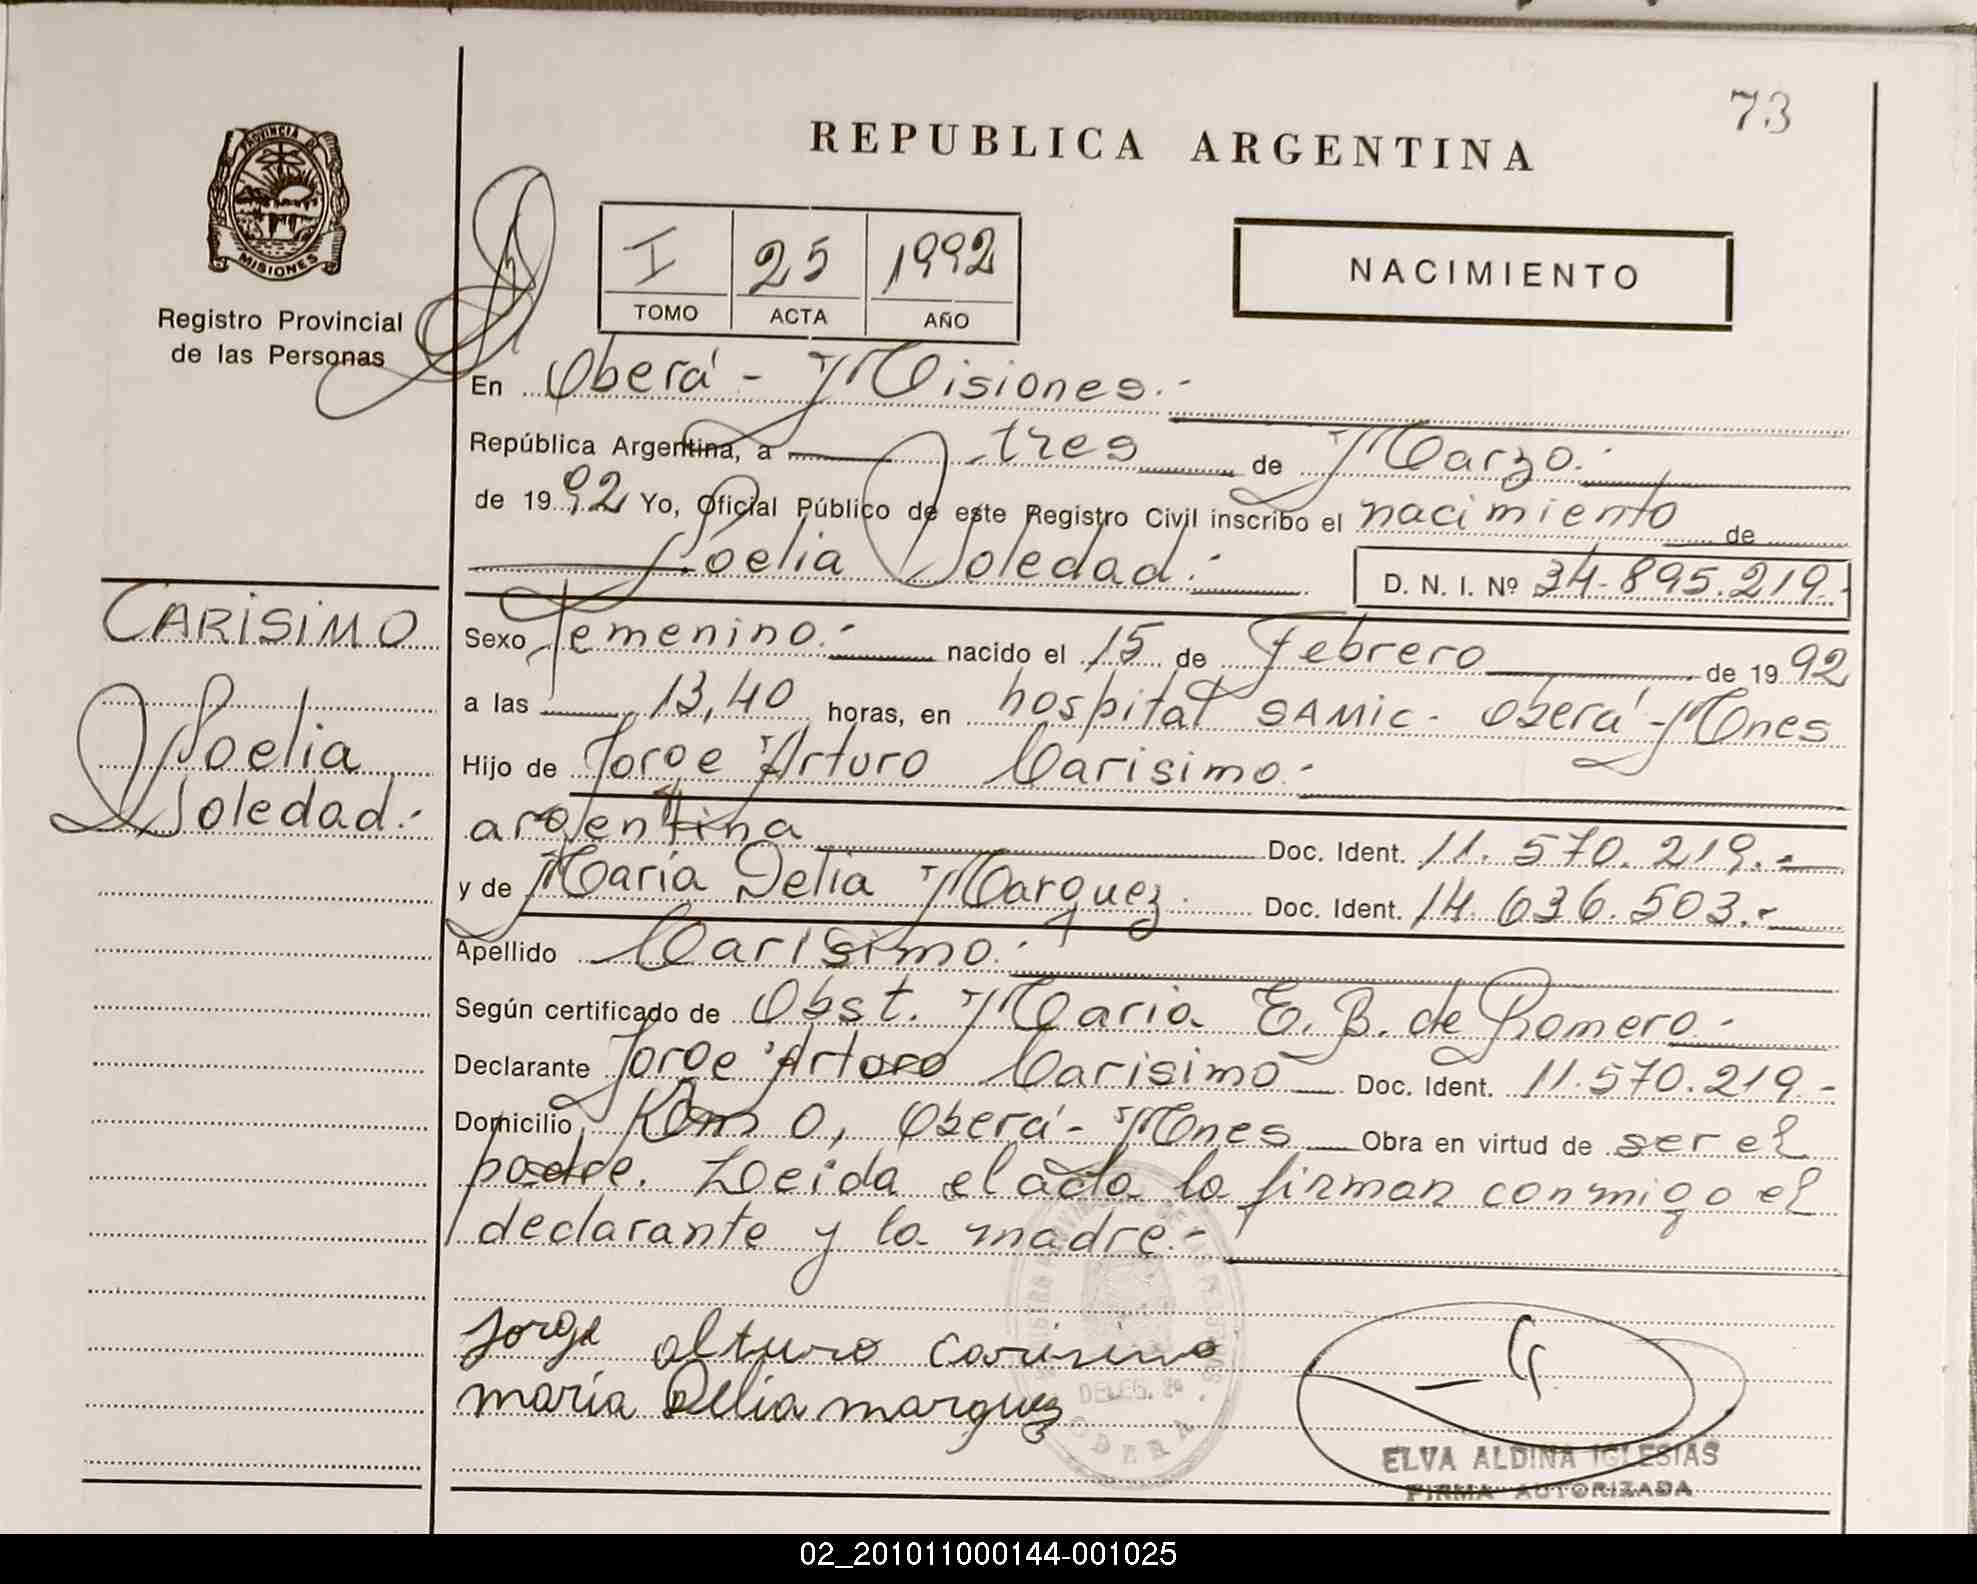 73
REPUBLICA ARGENTINA
PROVINCIA DE
MISIONES
Registro Provincial
de las Personas
I 25 1992
TOMO ACTA AÑO
NACIMIENTO
En Oberá - Misiones.-
República Argentina, a tres de Marzo.-
de 1992 Yo, Oficial Público de este Registro Civil inscribo el nacimiento de
Noelia Soledad.- D. N. I. Nº 34.895.219.-
CARISIMO
Noelia
Soledad.-
Sexo Femenino.- nacido el 15 de Febrero de 1992
a las 13,40 horas, en hospital SAMIC - Oberá - Mnes
Hijo de Jorge Arturo Carisimo.-
argentina Doc. Ident. 11.570.219.-
y de María Delia Marquez. Doc. Ident. 14.636.503.-
Apellido Carisimo.-
Según certificado de Obst. Maria E. B. de Romero.-
Declarante Jorge Arturo Carisimo Doc. Ident. 11.570.219.-
Domicilio Km 0, Oberá - Mnes Obra en virtud de ser el
padre. Leida el acta la firman conmigo el
declarante y la madre.-
Jorge alturo carisimo
maría Delia marquez
DELEG.
OBERA
ELVA ALDINA IGLESIAS
FIRMA AUTORIZADA
02_201011000144-001025